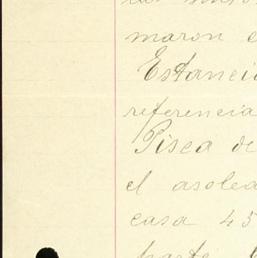 maron e
Estanci
referencia
Pisca de
el asolea
casa 45